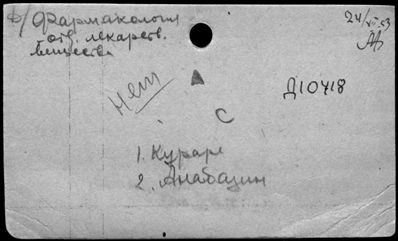 б/ Фармакология
отд. лекарств.
вещества
24/VII 53
Нет
Д10418
С
1. Кураре
2. Анабазин